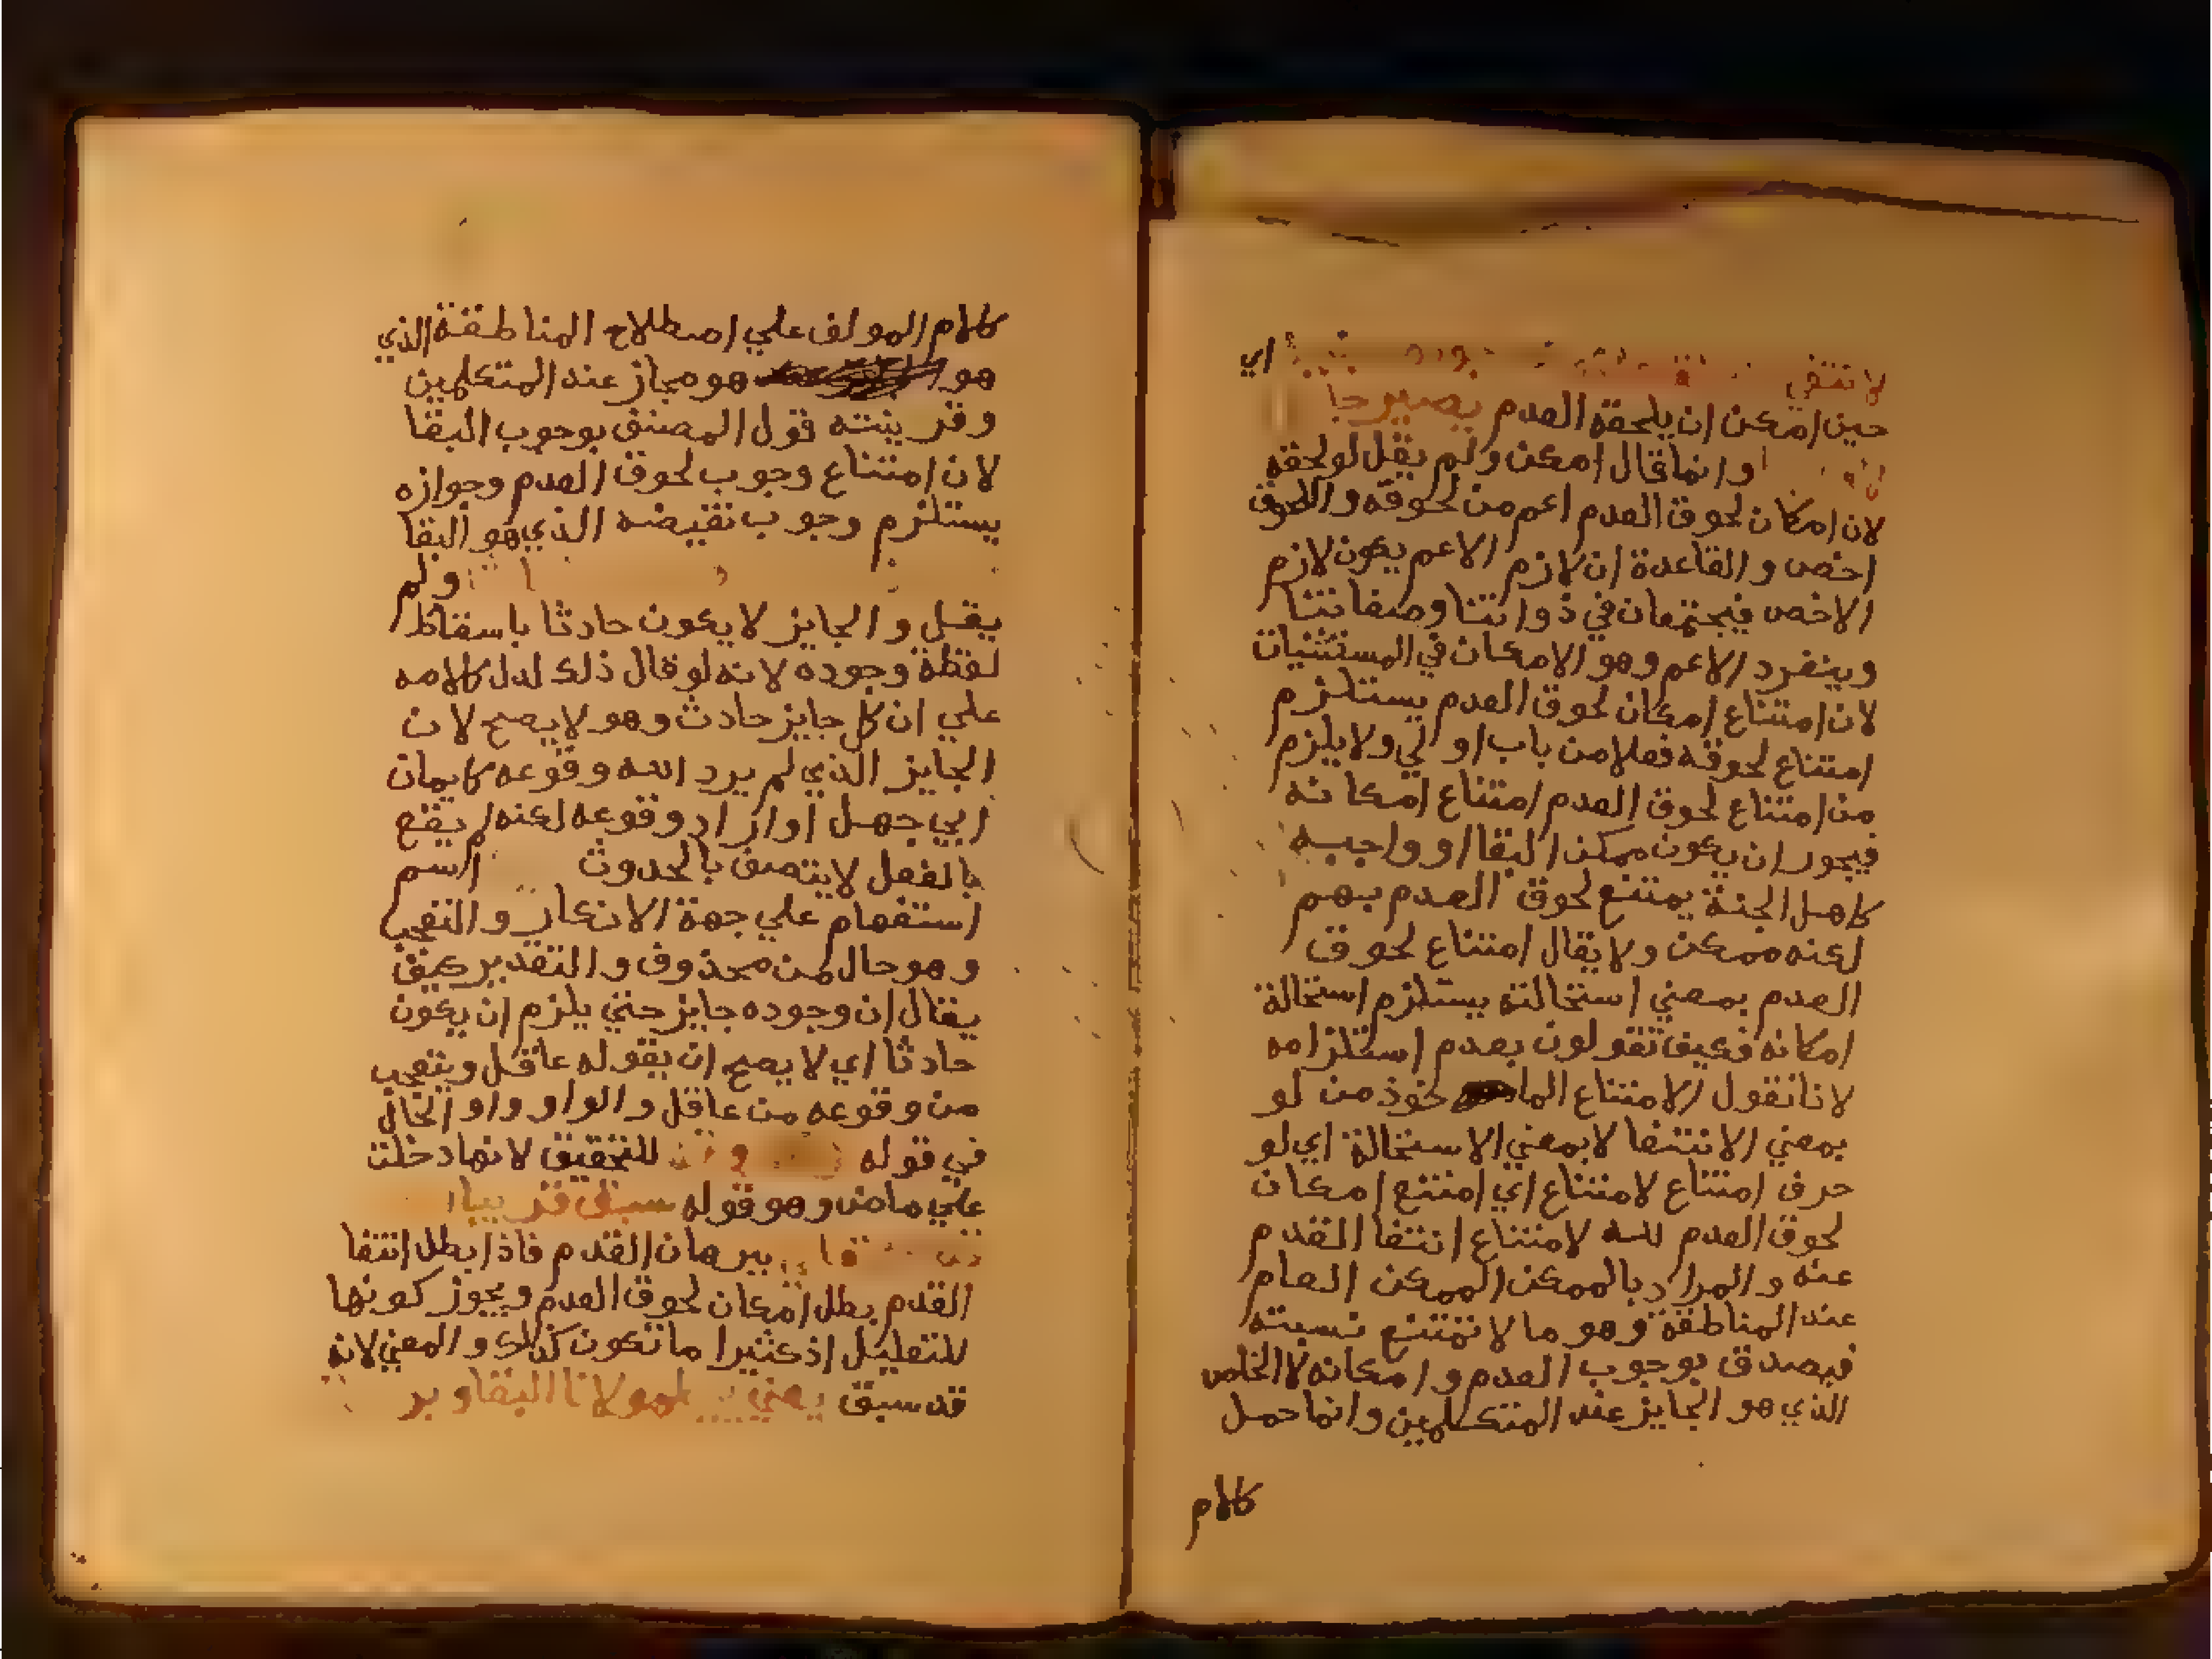 لانتفي اي
حين امكن ان يلحقه العدم يصير جا
وانما قال امكن ولم يقل لو لحقه
لان امكان لحوق العدم اعم من لحوقه واللحوق
اخص والقاعدة ان لازم الاعم يكون لازم
الاخص فيجتمعان في ذواتنا وصفاتنا
وينفرد الاعم وهو الامكان في المستثنيات
لان امتناع امكان لحوق العدم يستلزم
امتناع لحوقه فعلا من باب اولي ولا يلزم
من امتناع لحوق العدم امتناع امكانه
فيجوز ان يكون ممكن البقا او واجبه
كاهل الجنة يمتنع لحوق العدم بهم
لكنه ممكن ولا يقال امتناع لحوق
العدم بمعني استحالته يستلزم استحالة
امكانه فكيف تقولون بعدم استلزامه
لانا نقول الامتناع الماخوذ من لو
بمعني الانتفا لا بمعني الاستحالة اي لو
حرف امتناع لامتناع اي امتنع امكان
لحوق العدم لله لامتناع انتفا القدم
عنه والمراد بالممكن الممكن العام
عند المناطقة وهو ما لا تمتنع نسبته
فيصدق بوجوب العدم وامكانه لا الخاص
الذي هو الجايز عند المتكلمين وانما حمل
كلام
كلام المولف علي اصطلاح المناطقة الذي
هو هو مجاز عند المتكلمين
وقرينته قول المصنف بوجوب البقا
لان امتناع وجوب لحوق العدم وجوازه
يستلزم وجوب نقيضه الذي هو البقا
ولم
يقل والجايز لا يكون حادثا باسقاط
لفظة وجوده لانه لو قال ذلك لدل كلامه
علي ان كل جايز حادث وهو لا يصح لان
الجايز الذي لم يرد الله وقوعه كايمان
ابي جهل او اراد وقوعه لكنه لم يقع
بالفعل لا يتصف بالحدوث اسم
استفهام علي جهة الانكار والتعجب
وهو حال من محذوف والتقدير كيف
يقال ان وجوده جايز حتي يلزم ان يكون
حادثا اي لا يصح ان يقوله عاقل ويتعجب
من وقوعه من عاقل والواو واو الحال
في قوله للتحقيق لانها دخلت
علي ماض وهو قوله سبق قريبا
برهان القدم فاذا بطل انتفا
القدم بطل امكان لحوق العدم ويجوز كونها
للتعليل اذ كثيرا ما تكون كذلك والمعني لانه
قد سبق يعني لمولانا البقا وبر